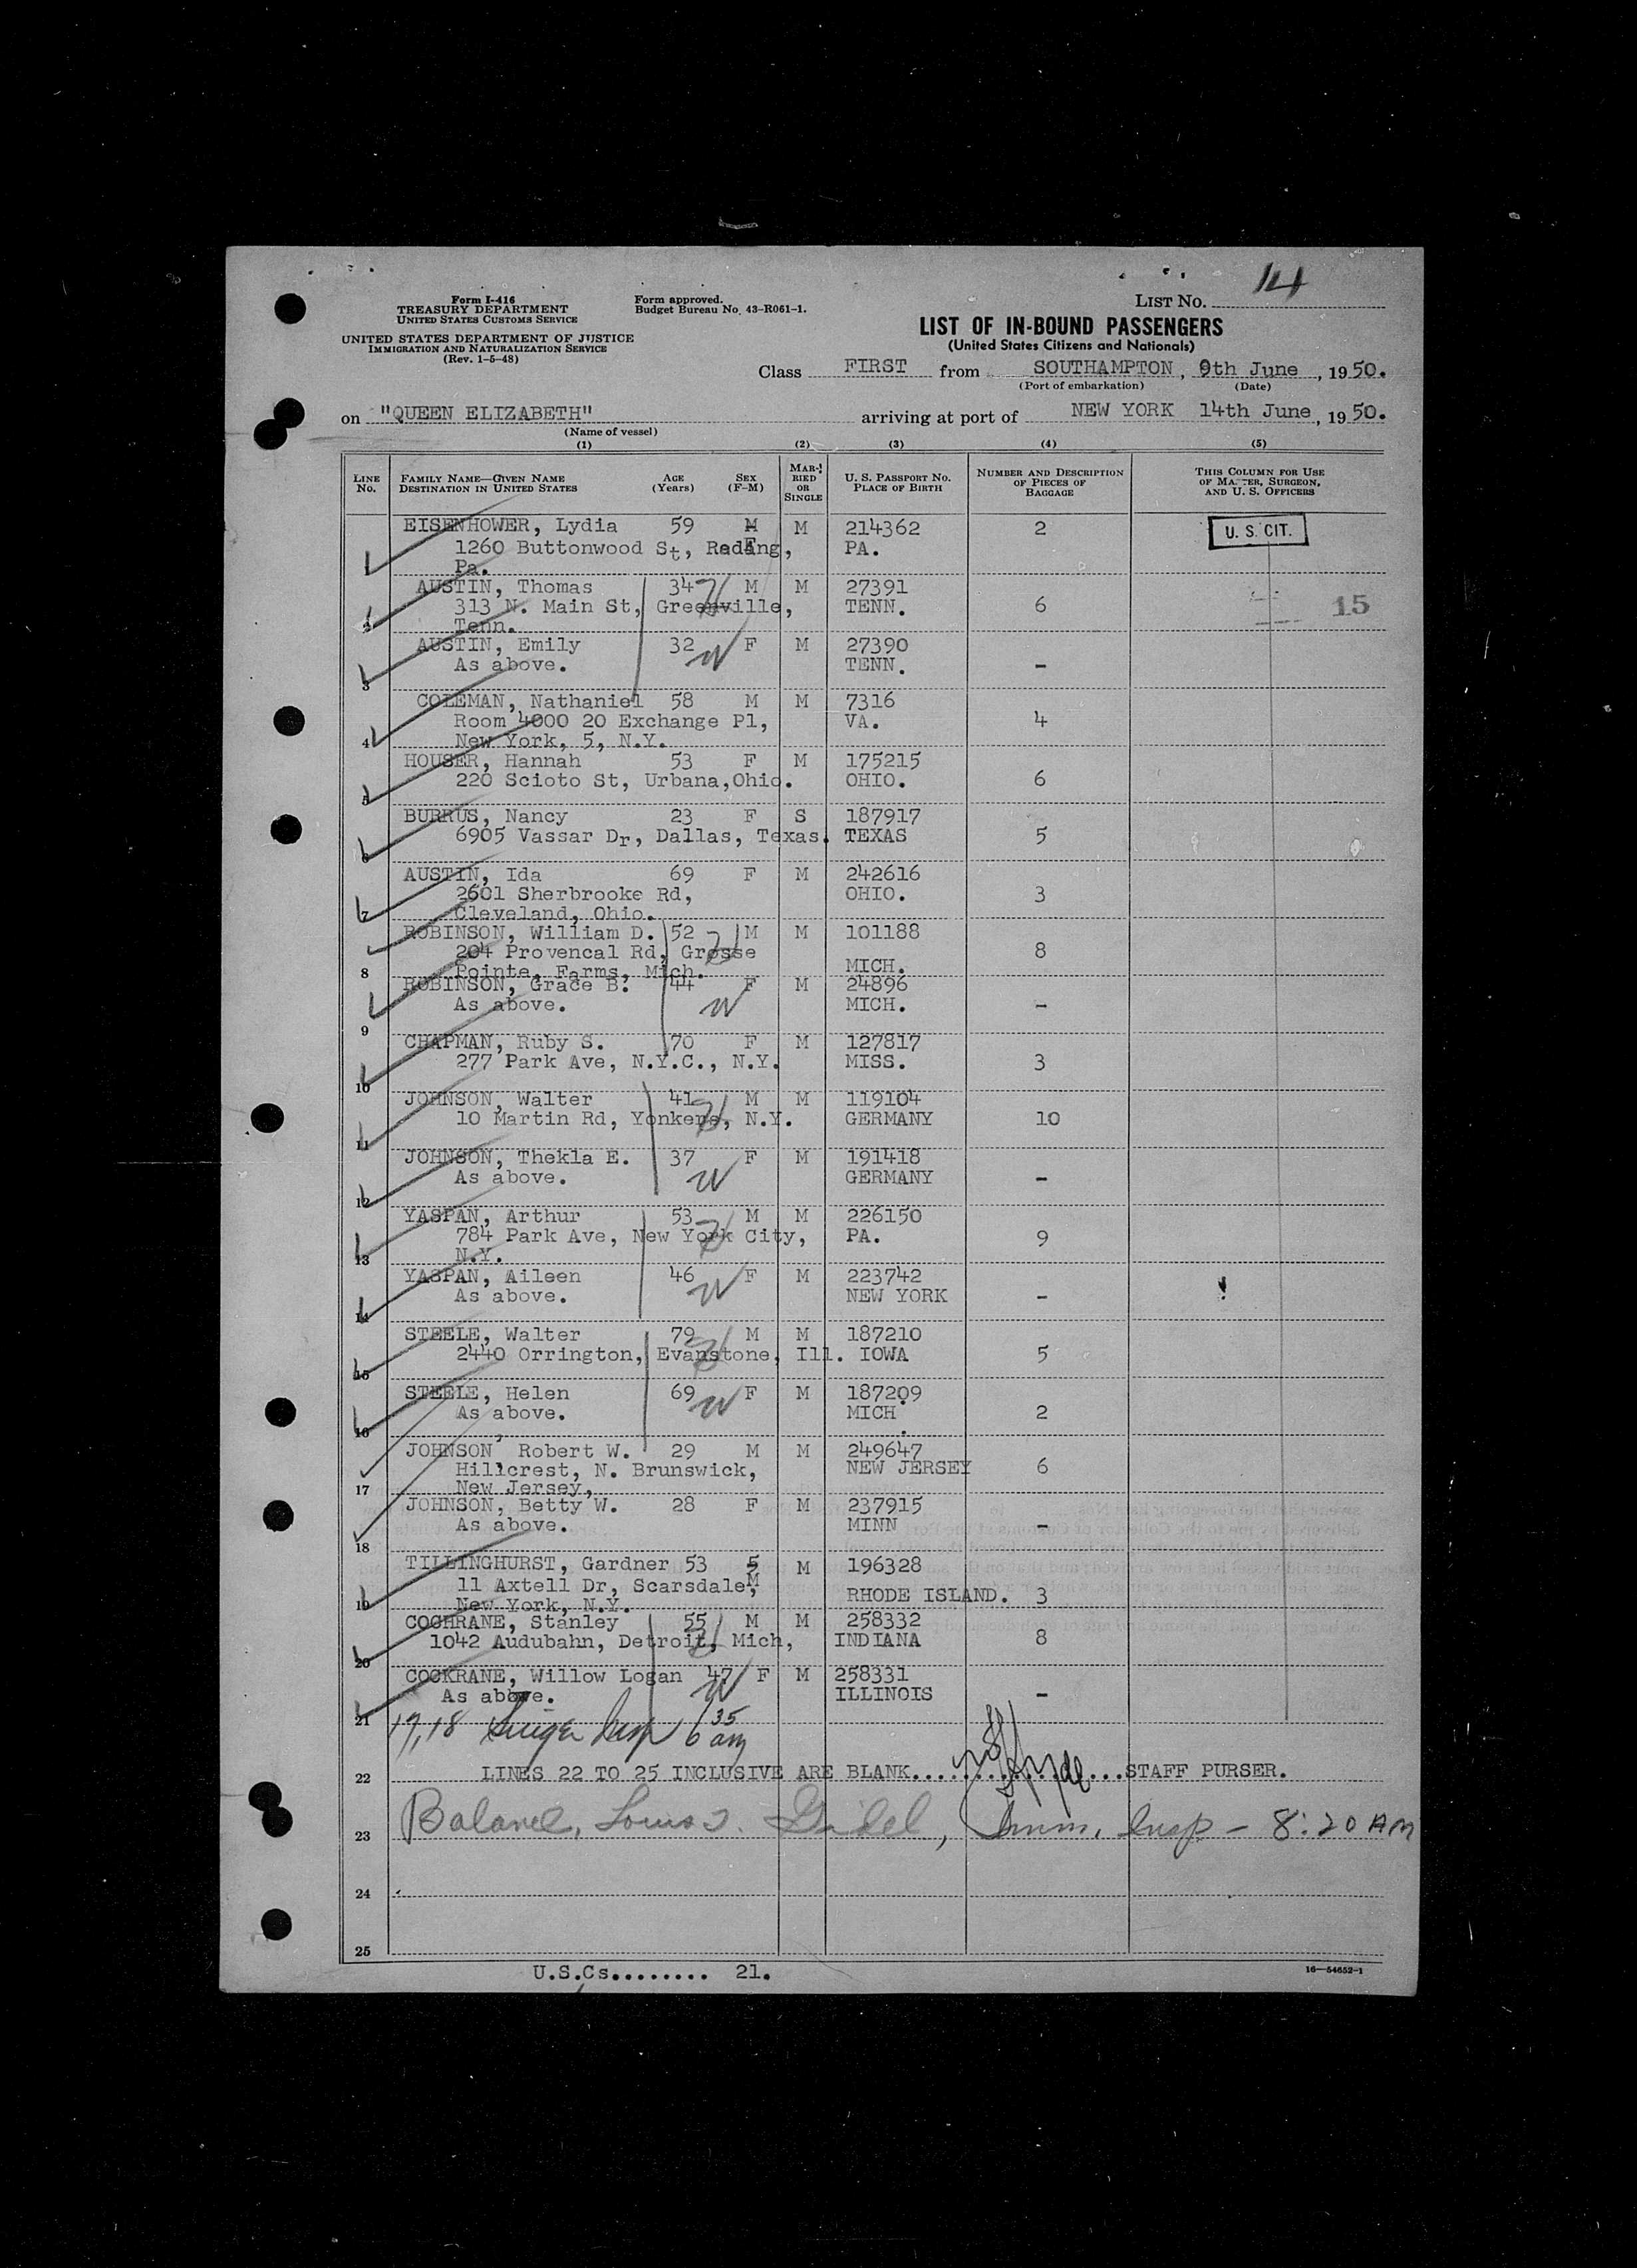 14
Form I-416
TREASURY DEPARTMENT
UNITED STATES CUSTOMS SERVICE
UNITED STATES DEPARTMENT OF JUSTICE
IMMIGRATION AND NATURALIZATION SERVICE
(Rev. 1-5-48)
Form approved.
Budget Bureau No. 43-R061-1.
LIST NO.
LIST OF IN-BOUND PASSENGERS
(United States Citizens and Nationals)
Class FIRST from SOUTHAMPTON, 9th June, 1950.
(Port of embarkation) (Date)
on "QUEEN ELIZABETH" arriving at port of NEW YORK 14th June, 1950.
(Name of vessel)
(1) (2) (3) (4) (5)
LINE NO. FAMILY NAME—GIVEN NAME DESTINATION IN UNITED STATES AGE (Years) SEX (F-M) MARRIED OR SINGLE U. S. PASSPORT NO. PLACE OF BIRTH NUMBER AND DESCRIPTION OF PIECES OF BAGGAGE THIS COLUMN FOR USE OF MASTER, SURGEON, AND U. S. OFFICERS
EISENHOWER, Lydia 59 F M 214362 2 U. S. CIT.
1260 Buttonwood St, Reding, PA.
Pa.
AUSTIN, Thomas 34 M M 27391
313 N. Main St, Greenville, TENN. 6 15
Tenn.
AUSTIN, Emily 32 F M 27390
As above. TENN. -
3
COLEMAN, Nathaniel 58 M M 7316
Room 4000 20 Exchange Pl, VA. 4
4 New York, 5, N.Y.
HOUSER, Hannah 53 F M 175215
220 Scioto St, Urbana,Ohio. OHIO. 6
5
BURRUS, Nancy 23 F S 187917
6905 Vassar Dr, Dallas, Texas. TEXAS 5
6
AUSTIN, Ida 69 F M 242616
2601 Sherbrooke Rd, OHIO. 3
7 Cleveland, Ohio.
ROBINSON, William D. 52 M M 101188
204 Provencal Rd, Grosse 8
8 Pointe, Farms, Mich. MICH.
ROBINSON, Grace B. 44 F M 24896
As above. MICH. -
9
CHAPMAN, Ruby S. 70 F M 127817
277 Park Ave, N.Y.C., N.Y. MISS. 3
10
JOHNSON, Walter 41 M M 119104
10 Martin Rd, Yonkers, N.Y. GERMANY 10
11
JOHNSON, Thekla E. 37 F M 191418
As above. GERMANY -
12
YASPAN, Arthur 53 M M 226150
784 Park Ave, New York City, PA. 9
13 N.Y.
YASPAN, Aileen 46 F M 223742
As above. NEW YORK -
14
STEELE, Walter 79 M M 187210
2440 Orrington, Evanstone, Ill. IOWA 5
15
STEELE, Helen 69 F M 187209
As above. MICH. 2
16
JOHNSON, Robert W. 29 M M 249647
Hillcrest, N. Brunswick, NEW JERSEY 6
17 New Jersey,
JOHNSON, Betty W. 28 F M 237915
As above. MINN -
18
TILLINGHURST, Gardner 53 M M 196328
11 Axtell Dr, Scarsdale, RHODE ISLAND. 3
19 New York, N.Y.
COCHRANE, Stanley 55 M M 258332
1042 Audubahn, Detroit, Mich, INDIANA 8
20
COCKRANE, Willow Logan 47 F M 258331
As above. ILLINOIS -
21
17, 18 Insp 6 35 am
22 LINES 22 TO 25 INCLUSIVE ARE BLANK. STAFF PURSER.
23 Balance, Louis Imm. Insp - 8:20 AM
24
25
U.S.Cs........ 21.
16—54652-1